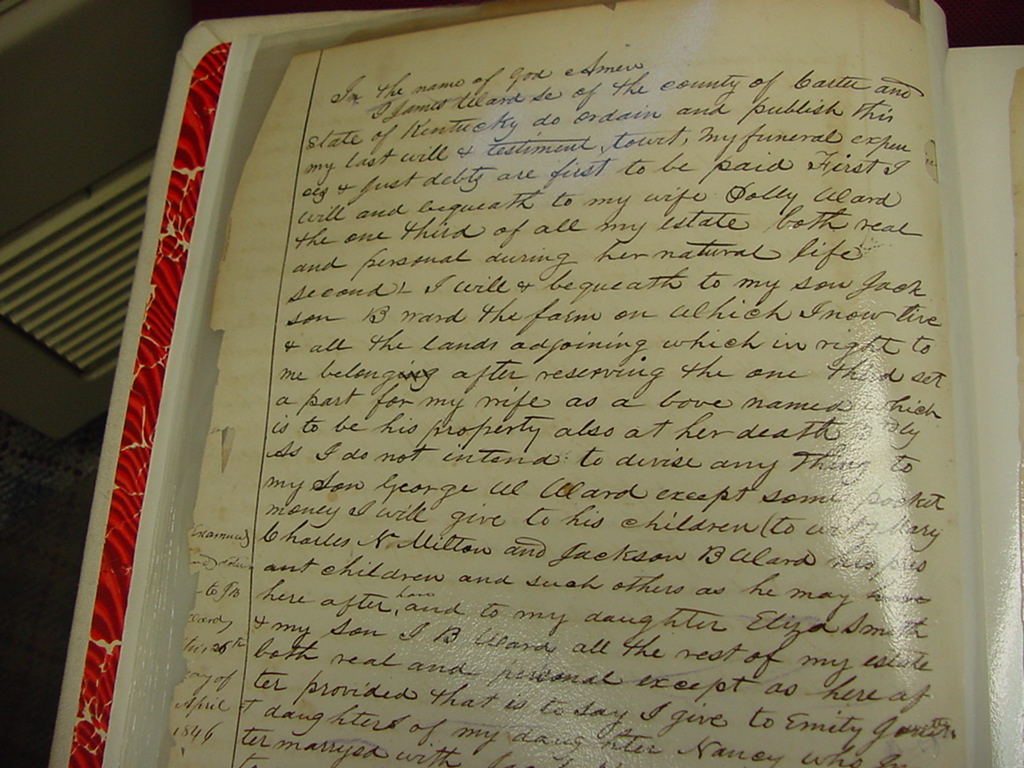 In the name of god Amen
I James Ward se of the county of Carter and
state of Kentucky do ordain and publish this
my last will & testiment, towit, my funeral expen
ces & just debts are first to be paid First I
will and bequeath to my wife Polly Ward
the one third of all my estate both real
and personal during her natural life
second I will & bequeath to my son Jack
son B ward the farm on Which I now live
& all the lands adjoining which in right to
me belonging after reserving the one third set
a part for my wife as a bove named which
is to be his property also at her death
As I do not intend to divise any thing to
my son George W Ward except some pocket
money I will give to his children (to wit) Mary
Charles N Milton and Jackson B Ward his pres
ant children and such others as he may
here after have, and to my daughter Eliza Smith
& my son J B Ward all the rest of my estate
both real and personal except as here af
ter provided that is to say I give to Emily
t daughters of my daughter Nancy who in
termarryed with
Examined
and
to JB
Ward
this 28th
day of
April
1846